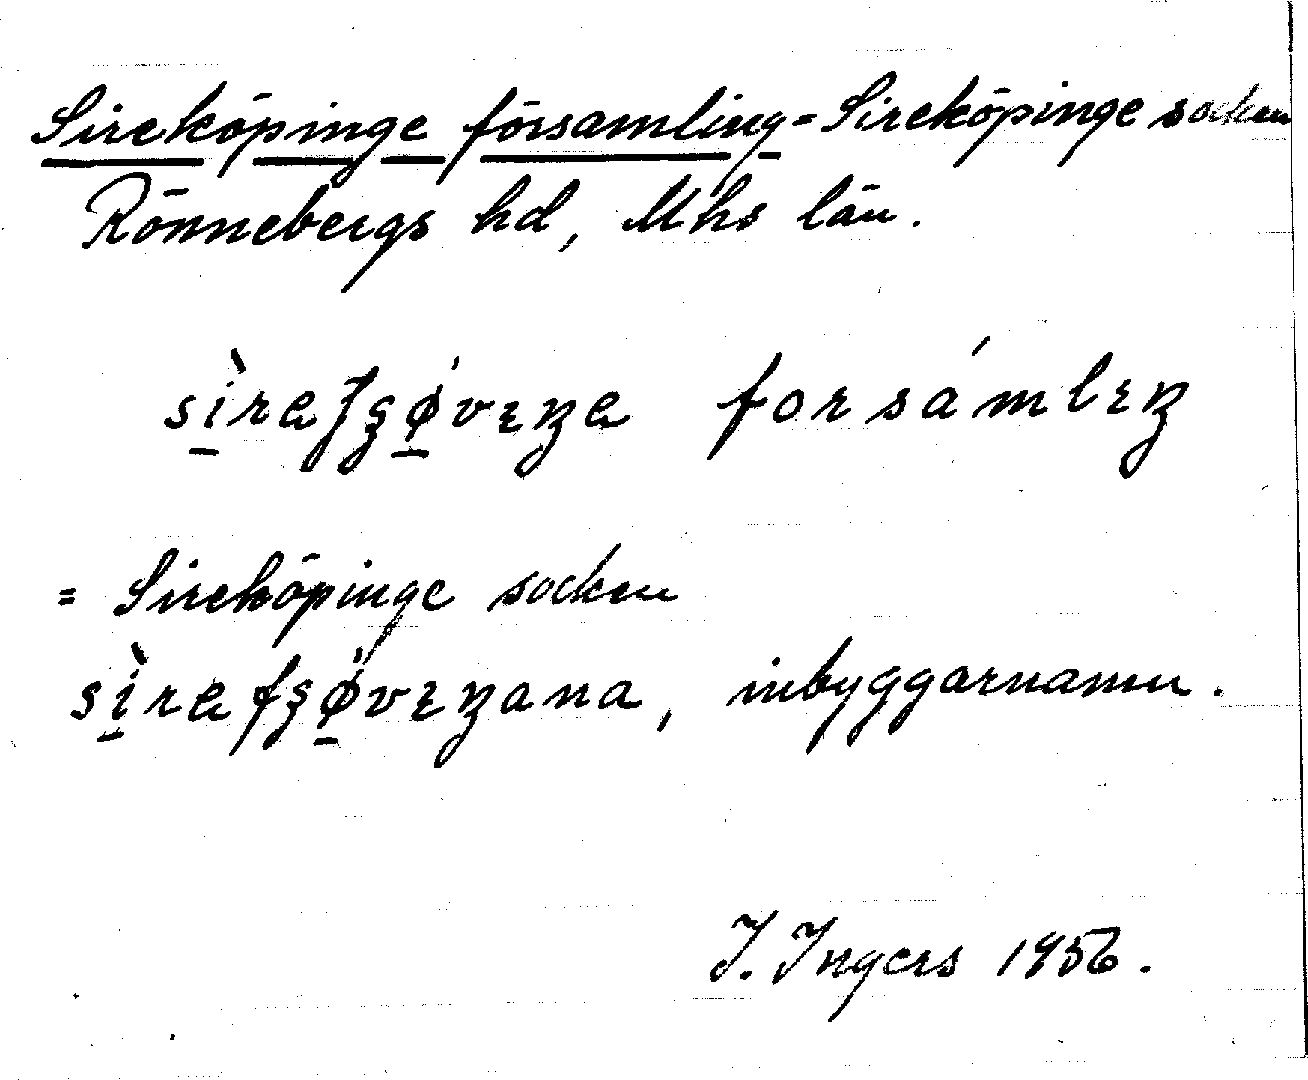 Sireköpinge församling = Sireköpinge socken
Rönnebergs hd, Mhs län.
sı̀reʃʂø̀vıŋe forsámlıŋ
= Sireköpinge socken
sı̀reʃʂø̀vıŋana, inbyggarnamn.
I. Ingers 1956.